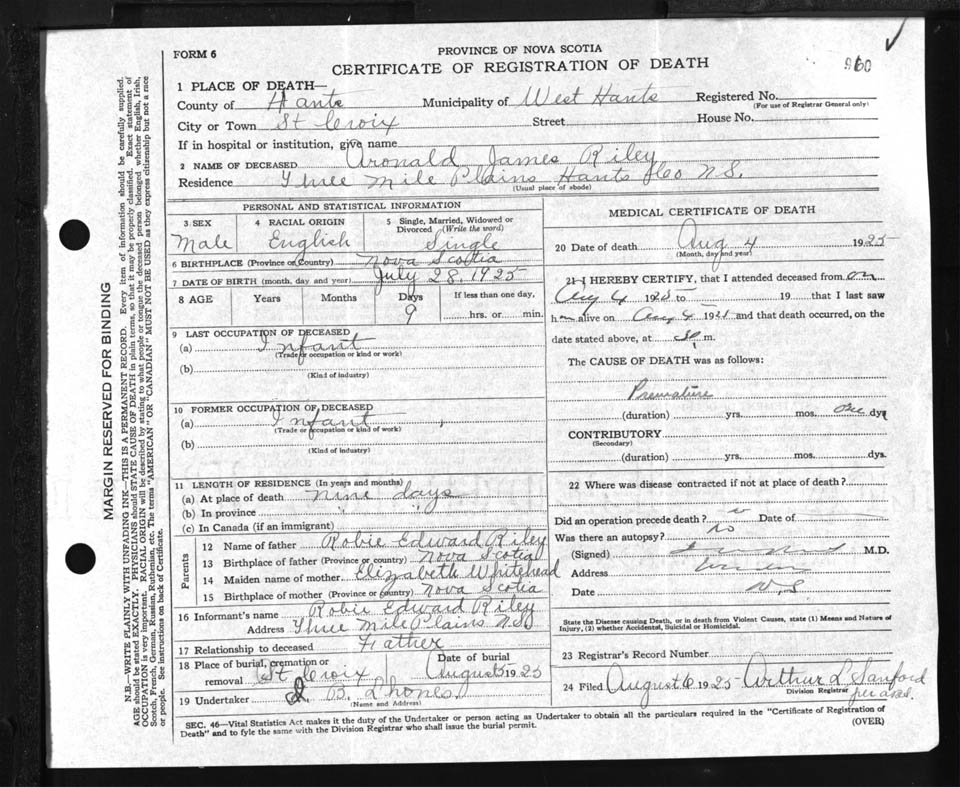 PROVINCE OF NOVA SCOTIA
FORM 6
CERTIFICATE OF REGISTRATION OF DEATH
960
1 PLACE OF DEATH—
County of Hants Municipality of West Hants Registered No.
(For use of Registrar General only)
City or Town St Croix Street House No.
If in hospital or institution, give name
2 NAME OF DECEASED Aronald James Riley
Residence Three Mile Plains Hants Co N.S.
(Usual place of abode)
PERSONAL AND STATISTICAL INFORMATION
3 SEX 4 RACIAL ORIGIN 5 Single, Married, Widowed or Divorced (Write the word)
Male English Single
6 BIRTHPLACE (Province or Country) Nova Scotia
7 DATE OF BIRTH (month, day and year) July 28, 1925
8 AGE Years Months Days If less than one day,
9 hrs. or min.
9 LAST OCCUPATION OF DECEASED
(a) Infant
(Trade or occupation or kind or work)
(b)
(Kind of industry)
10 FORMER OCCUPATION OF DECEASED
(a) Infant
(Trade or occupation or kind of work)
(b)
(Kind of industry)
11 LENGTH OF RESIDENCE (In years and months)
(a) At place of death nine days
(b) In province " "
(c) In Canada (if an immigrant)
Parents
12 Name of father Robie Edward Riley
13 Birthplace of father (Province or country) Nova Scotia
14 Maiden name of mother Elizabeth Whitehead
15 Birthplace of mother (Province or country) Nova Scotia
16 Informant's name Robie Edward Riley
Address Three Mile Plains N.S
17 Relationship to deceased Father
18 Place of burial, cremation or removal St Croix Date of burial August 5 1925
19 Undertaker B.
(Name and Address)
MEDICAL CERTIFICATE OF DEATH
20 Date of death Aug 4 1925
(Month, day and year)
21 I HEREBY CERTIFY, that I attended deceased from on
Aug 4 1925 to 19 that I last saw
h alive on Aug 4 192 and that death occurred, on
date stated above, at m.
The CAUSE OF DEATH was as follows:
Premature
(duration) yrs. mos. dys
CONTRIBUTORY
(Secondary)
(duration) yrs. mos. dys.
22 Where was disease contracted if not at place of death?
Did an operation precede death? Date of
Was there an autopsy? no
(Signed) M.D.
Address
Date N.S.
State the Disease causing Death, or in death from Violent Causes, state (1) Means and Nature of
Injury, (2) whether Accidental, Suicidal or Homicidal.
23 Registrar's Record Number
24 Filed August 6 1925 Arthur L Sanford
Division Registrar
SEC. 46—Vital Statistics Act makes it the duty of the Undertaker or person acting as Undertaker to obtain all the particulars required in the "Certificate of Registration of
Death" and to fyle the same with the Division Registrar who shall issue the burial permit.
(OVER)
MARGIN RESERVED FOR BINDING
N.B.—WRITE PLAINLY WITH UNFADING INK—THIS IS A PERMANENT RECORD. Every item of information should be carefully supplied.
AGE should be stated EXACTLY. PHYSICIANS should STATE CAUSE OF DEATH in plain terms, so that it may be properly classified. Exact statement of
OCCUPATION is very important. RACIAL ORIGIN will be described by stating to what people or tongue the deceased person belonged whether English, Irish,
Scotch, French, German, Russian, Ruthenian, etc. The terms "AMERICAN" OR "CANADIAN" MUST NOT BE USED as they express citizenship but not a race
or people. See instructions on back of Certificate.